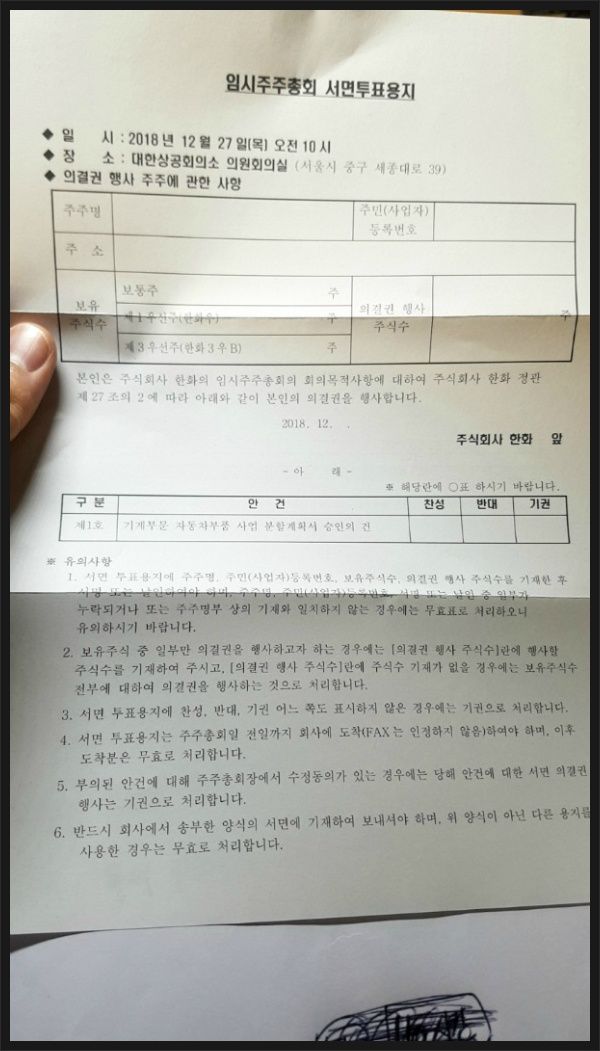 임시주주총회 서면투표용지
◆ 일 시 : 2018년 12월 27일(목) 오전 10시
◆ 장 소 : 대한상공회의소 의원회의실 (서울시 중구 세종대로 39)
◆ 의결권 행사 주주에 관한 사항
주주명 주민(사업자)
등록번호
주 소
보유
주식수
보통주 주
제1우선주(한화우) 주
제3우선주(한화3우B) 주
의결권 행사
주식수
주
본인은 주식회사 한화의 임시주주총회의 회의목적사항에 대하여 주식회사 한화 정관
제27조의 2에 따라 아래와 같이 본인의 의결권을 행사합니다.
2018. 12. .
주식회사 한화 앞
- 아 래 -
※ 해당란에 ○표 하시기 바랍니다.
구 분 안 건 찬성 반대 기권
제1호 기계부문 자동차부품 사업 분할계획서 승인의 건
※ 유의사항
1. 서면 투표용지에 주주명, 주민(사업자)등록번호, 보유주식수, 의결권 행사 주식수를 기재한 후
서명 또는 날인하여야 하며, 주주명, 주민(사업자)등록번호, 서명 또는 날인 중 일부가
누락되거나 또는 주주명부 상의 기재와 일치하지 않는 경우에는 무효표로 처리하오니
유의하시기 바랍니다.
2. 보유주식 중 일부만 의결권을 행사하고자 하는 경우에는 [의결권 행사 주식수]란에 행사할
주식수를 기재하여 주시고, [의결권 행사 주식수]란에 주식수 기재가 없을 경우에는 보유주식수
전부에 대하여 의결권을 행사하는 것으로 처리합니다.
3. 서면 투표용지에 찬성, 반대, 기권 어느 쪽도 표시하지 않은 경우에는 기권으로 처리합니다.
4. 서면 투표용지는 주주총회일 전일까지 회사에 도착(FAX는 인정하지 않음)하여야 하며, 이후
도착분은 무효로 처리합니다.
5. 부의된 안건에 대해 주주총회장에서 수정동의가 있는 경우에는 당해 안건에 대한 서면 의결권
행사는 기권으로 처리합니다.
6. 반드시 회사에서 송부한 양식의 서면에 기재하여 보내셔야 하며, 위 양식이 아닌 다른 용지를
사용한 경우는 무효로 처리합니다.